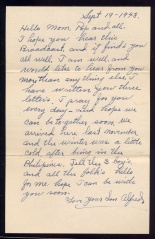 Sept 19-1943.
Hello Mom, Pop and all.
I hope you hear this
Broadcast, and it finds you
all well, I am well, and
would like to hear from you
more than any thing else. I
have written you three
letters. I pray for you
every day, and hope we
can be together soon we
arrived here last november
and the winter was a little
cold after being in the
Philipines. Tell the 3 boys,
and all the folk's hello
for me hope I can be with
you soon.
Your Son Alfred